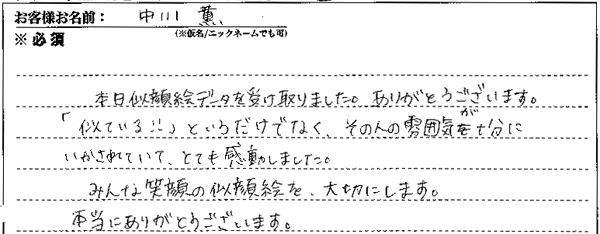 お客様お名前： 中川 薫
※必須 (※仮名/ニックネームでも可)
本日似顔絵データを受け取りました。ありがとうございます。
「似ている!!」というだけでなく、その人の雰囲気が十分に
いかされていて、とても感動しました。
みんな笑顔の似顔絵を、大切にします。
本当にありがとうございます。